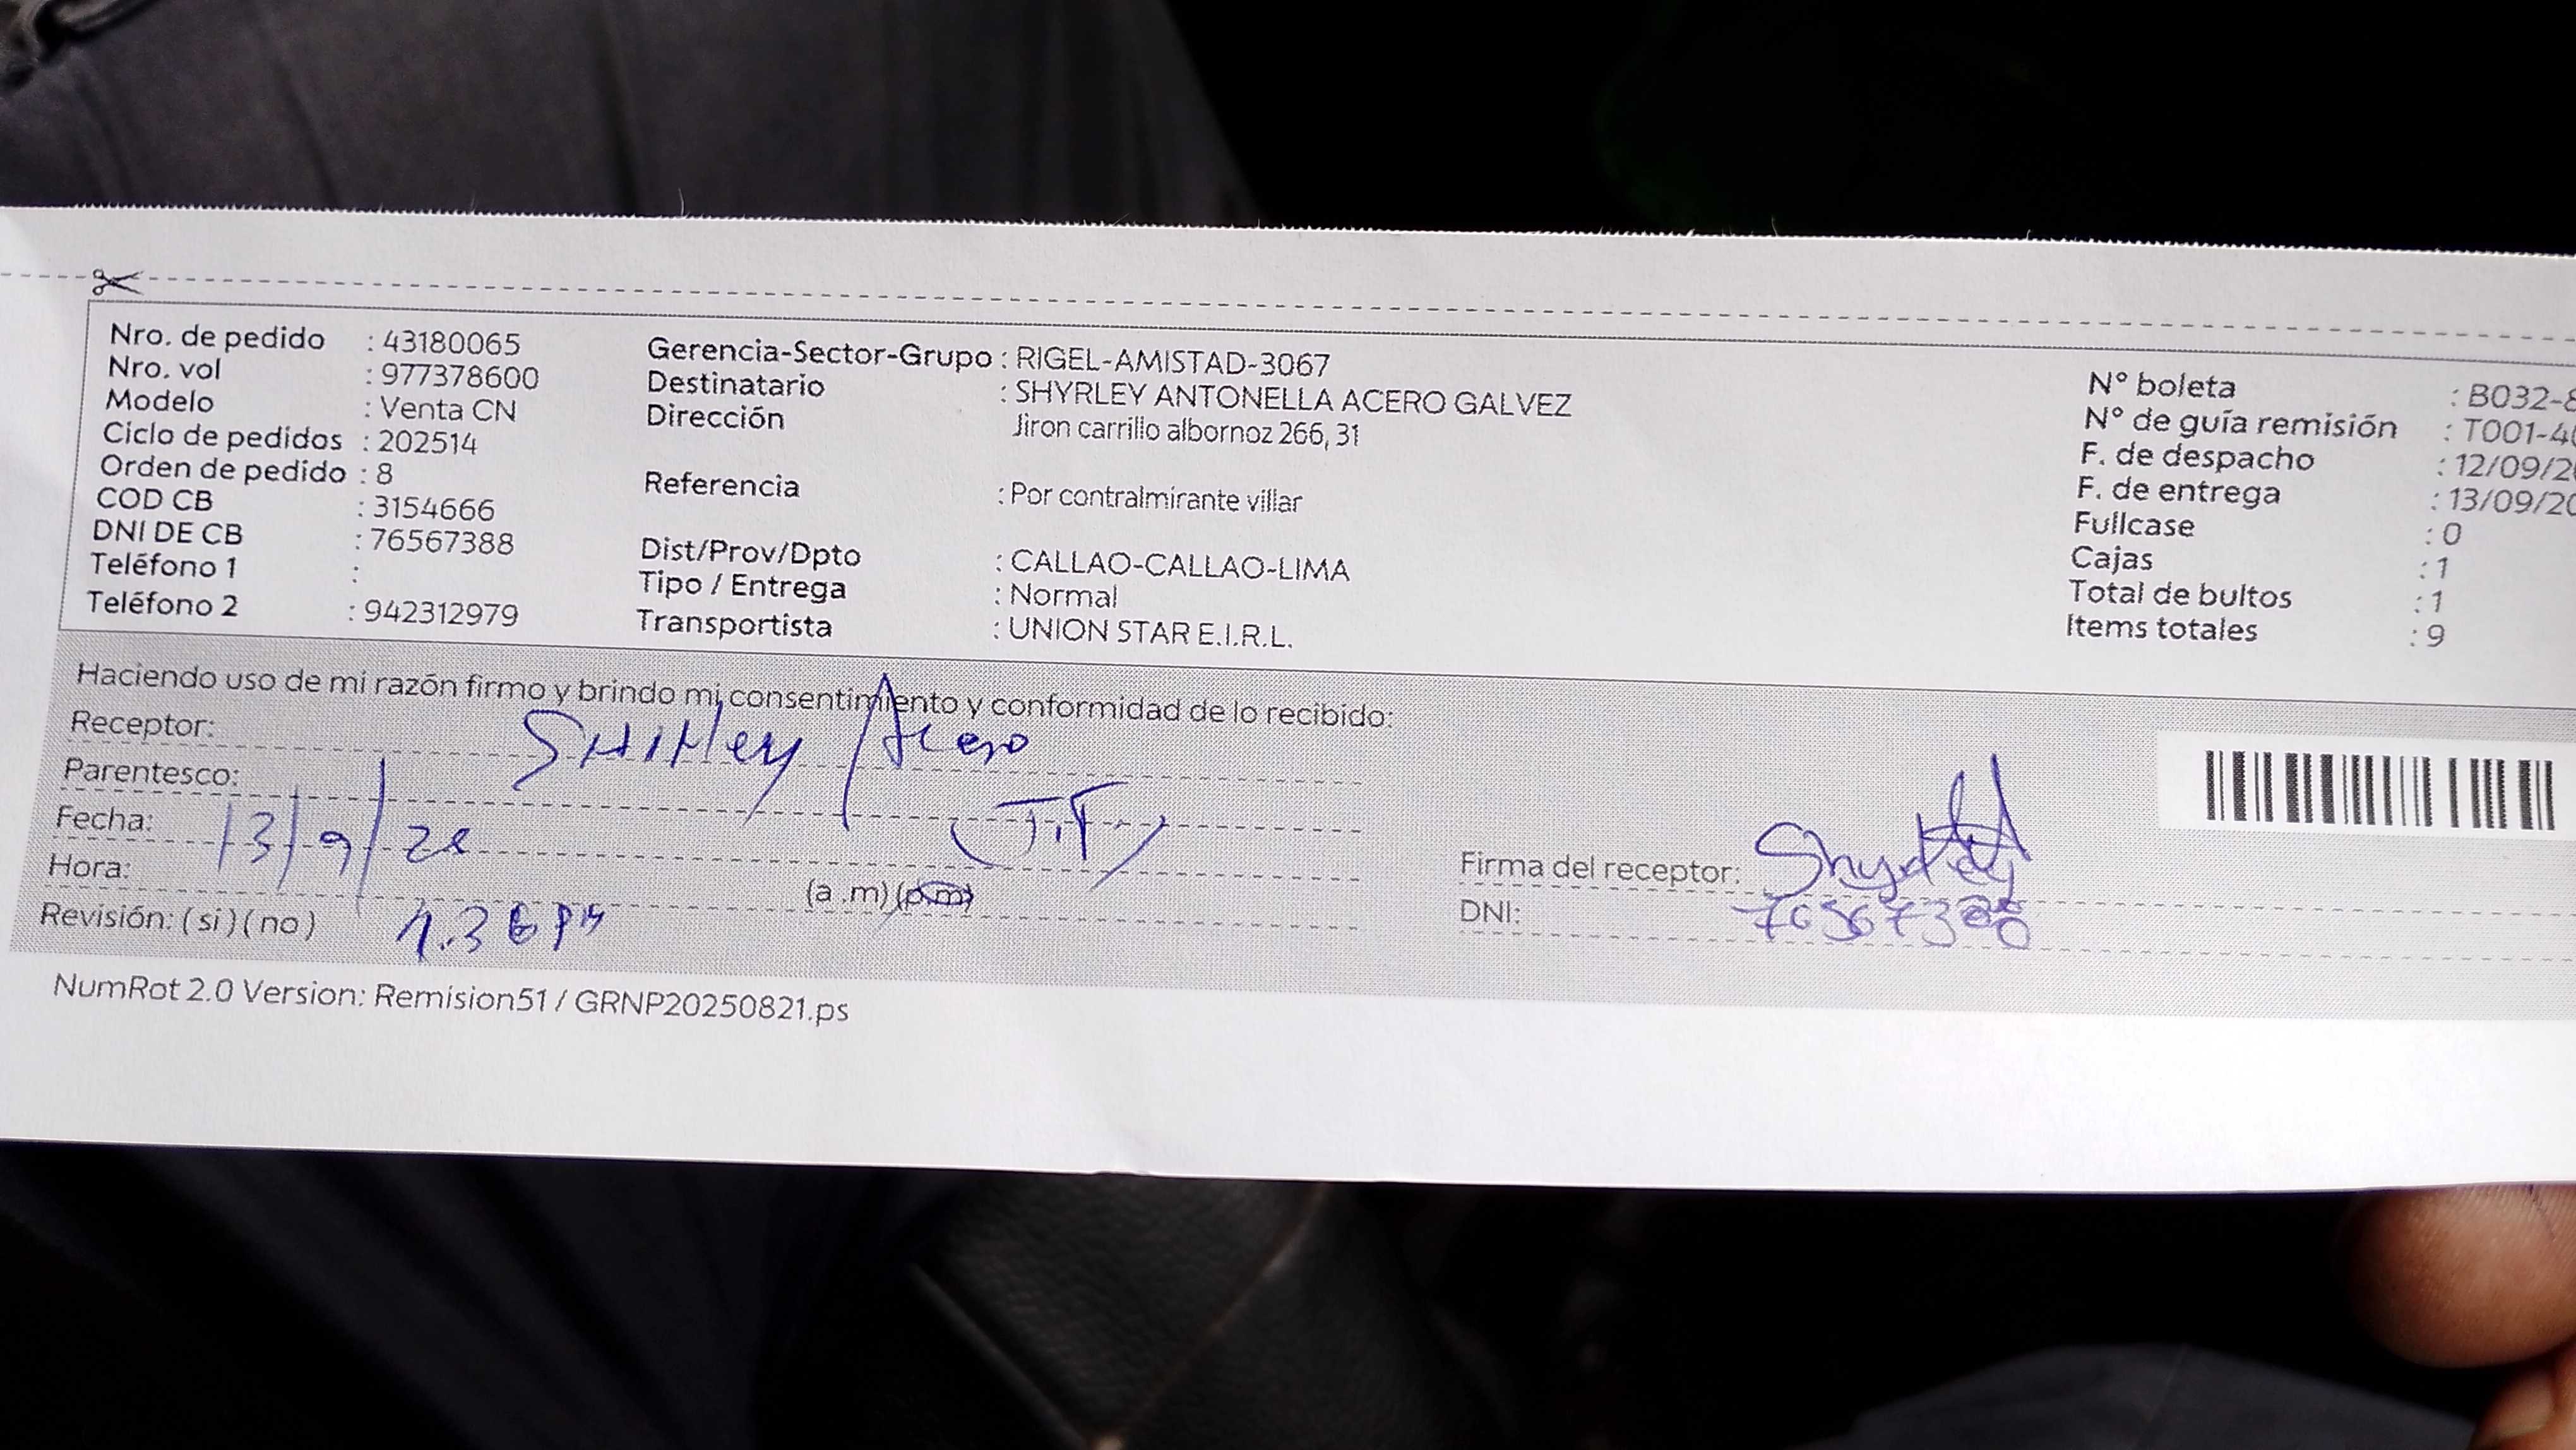 Nro. de pedido : 43180065
Nro. vol : 977378600
Modelo : Venta CN
Ciclo de pedidos : 202514
Orden de pedido : 8
COD CB : 3154666
DNI DE CB : 76567388
Teléfono 1 :
Teléfono 2 : 942312979
Gerencia-Sector-Grupo : RIGEL-AMISTAD-3067
Destinatario : SHYRLEY ANTONELLA ACERO GALVEZ
Dirección Jiron carrillo albornoz 266, 31
Referencia : Por contralmirante villar
Dist/Prov/Dpto : CALLAO-CALLAO-LIMA
Tipo / Entrega : Normal
Transportista : UNION STAR E.I.R.L.
N° boleta : B032-8
N° de guía remisión : T001-40
F. de despacho : 12/09/20
F. de entrega : 13/09/20
Fullcase : 0
Cajas : 1
Total de bultos : 1
Items totales : 9
Haciendo uso de mi razón firmo y brindo mi consentimiento y conformidad de lo recibido:
Receptor: SHIRley Acero
Parentesco:
Fecha: 13/9/
Hora: (a .m) (p.m)
Revisión: ( si ) ( no )
Firma del receptor:
DNI:
NumRot 2.0 Version: Remision51 / GRNP20250821.ps